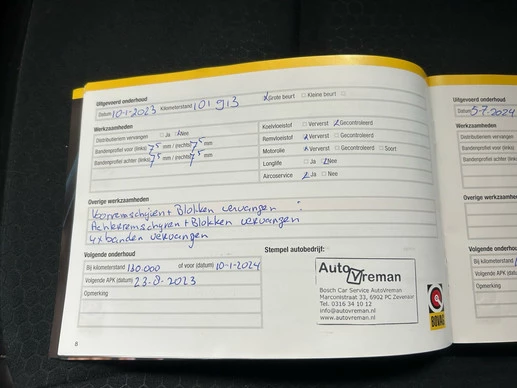 Uitgevoerd onderhoud
Datum 10-1-2023 Kilometerstand 101 913 Grote beurt Kleine beurt
Werkzaamheden
Distributieriem vervangen Ja Nee
Bandenprofiel voor (links) 7 5 mm / (rechts) 7 5 mm
Bandenprofiel achter (links) 7 5 mm / (rechts) 7 5 mm
Koelvloeistof Ververst Gecontroleerd
Remvloeistof Ververst Gecontroleerd
Motorolie Ververst Gecontroleerd Soort
Longlife Ja Nee
Aircoservice Ja Nee
Overige werkzaamheden
Voorremschijven + Blokken vervangen
Achterremschijven + Blokken vervangen
4x banden vervangen
Volgende onderhoud
Bij kilometerstand 130.000 of voor (datum) 10-1-2024
Volgende APK (datum) 23-8-2023
Opmerking
Stempel autobedrijf:
AutoVreman
Bosch Car Service AutoVreman
Marconistraat 33, 6902 PC Zevenaar
Tel. 0316 34 10 12
info@autovreman.nl
www.autovreman.nl
BOVAG
6
Uitgevoerd onderhoud
Datum 5-7-2024
Werkzaamheden
Distributieriem vervangen
Bandenprofiel voor (links)
Bandenprofiel achter (links)
Overige werkzaamheden
Volgende onderhoud
Bij kilometerstand
Volgende APK (datum)
Opmerking